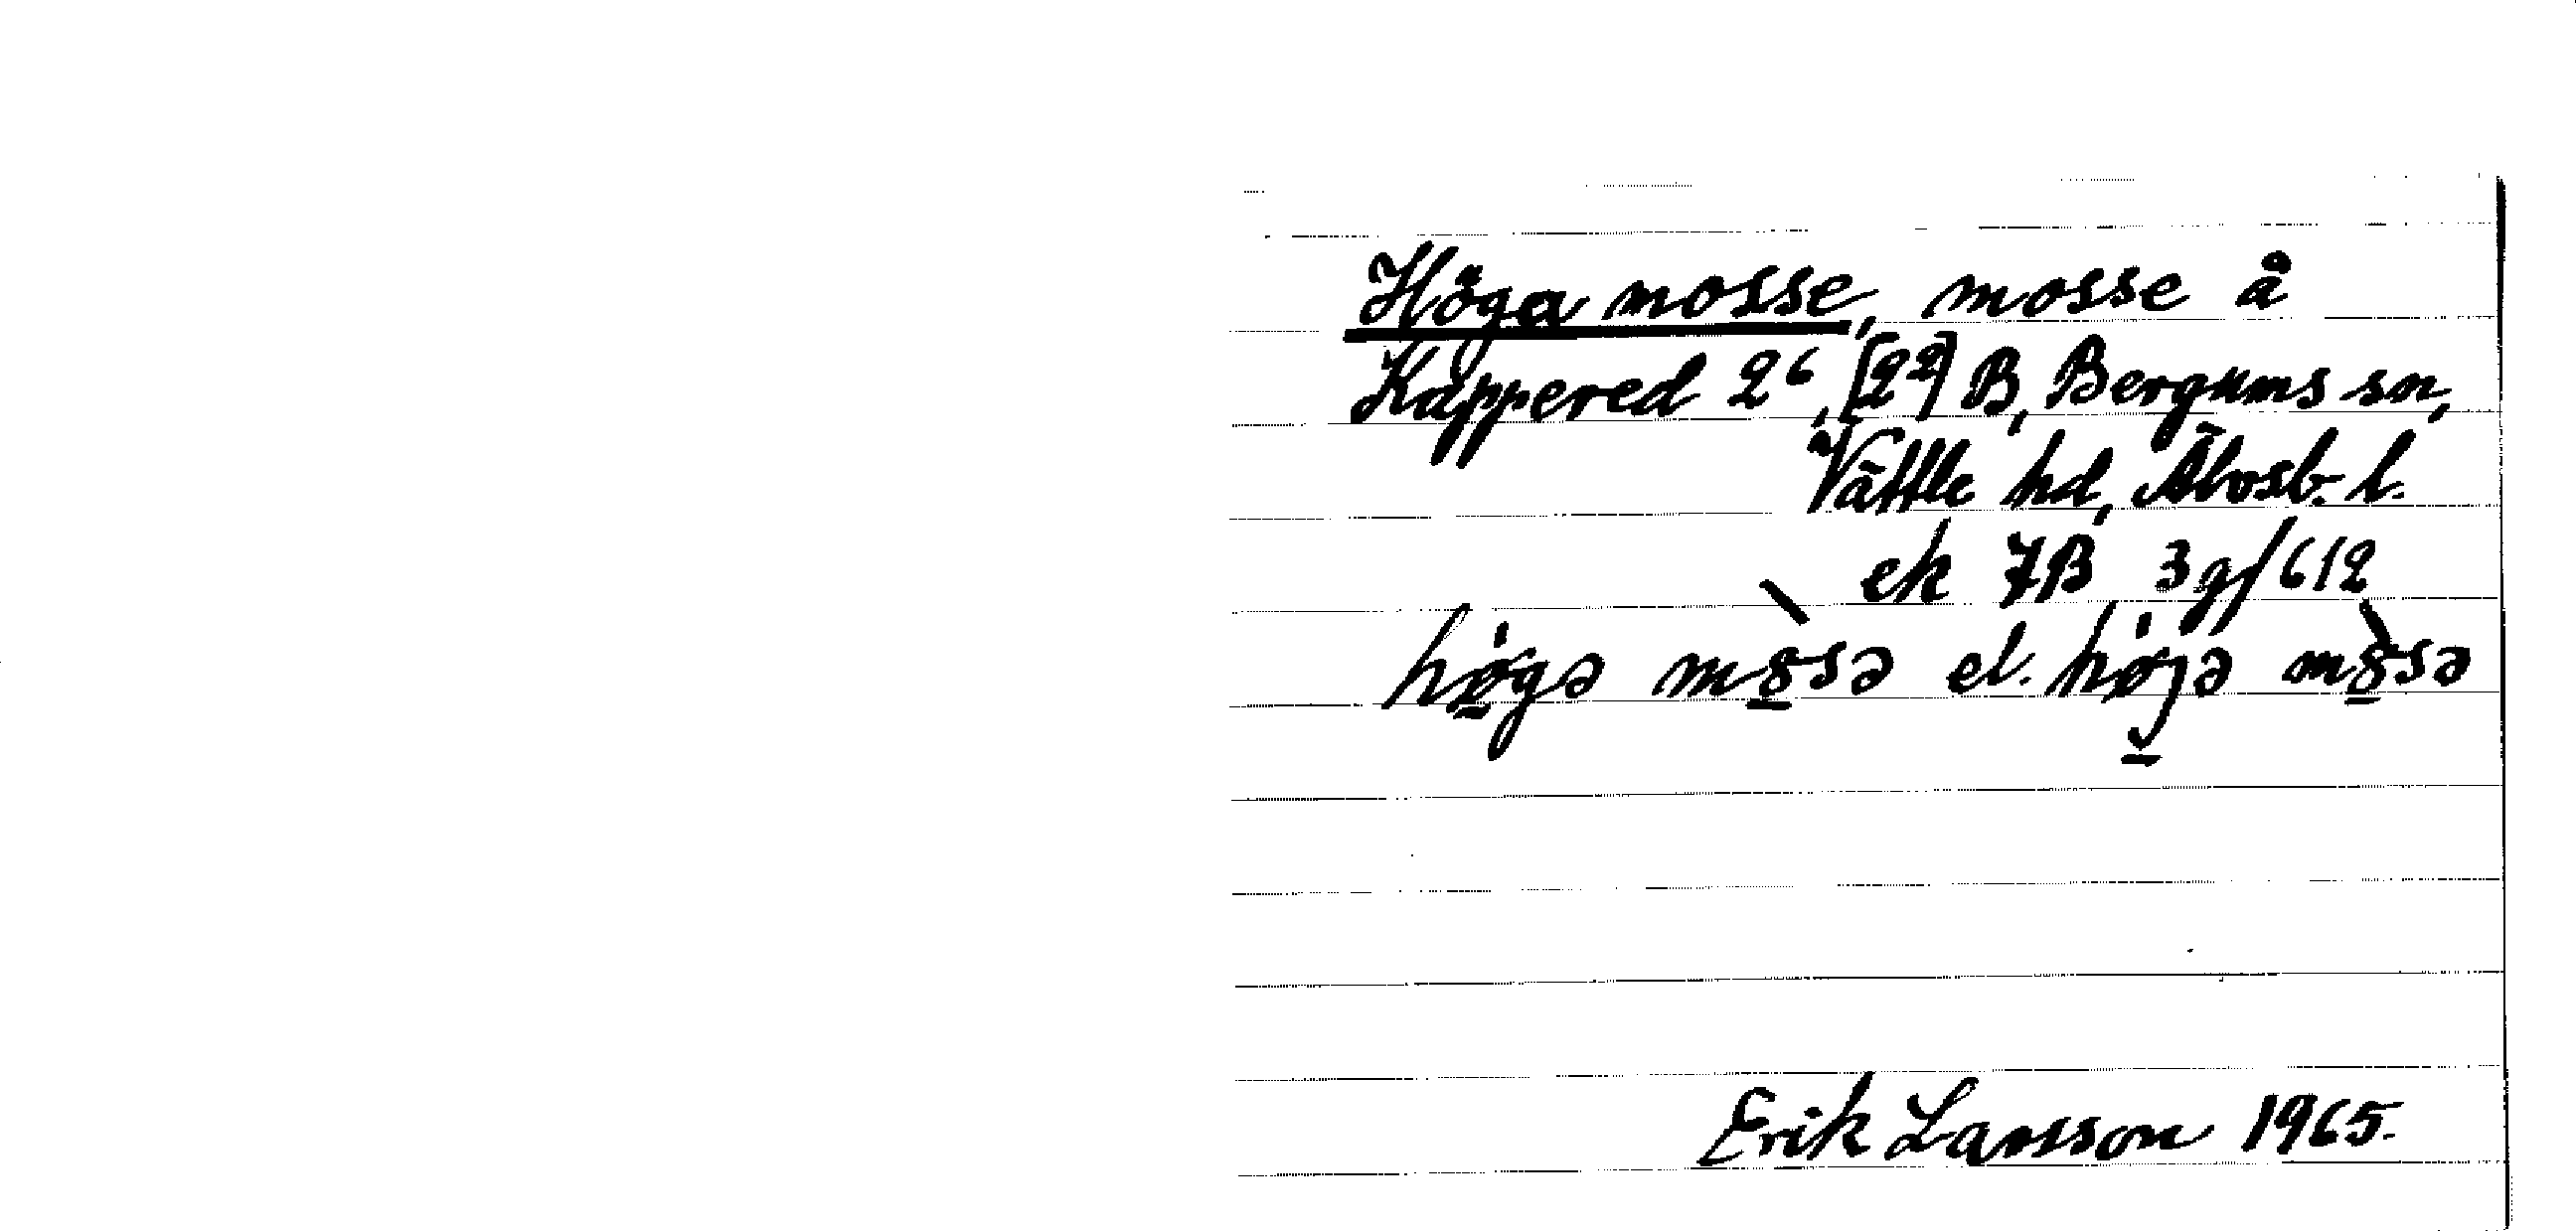 Höga mosse, mosse å
Käppered 2⁶, [2²] B, Bergums sn,
Vättle hd, Älvsb. l.
ek 7B 3g/612
hø̀gə mo̱sə el. hø̀jə mo̱sə
Erik Larsson 1965.